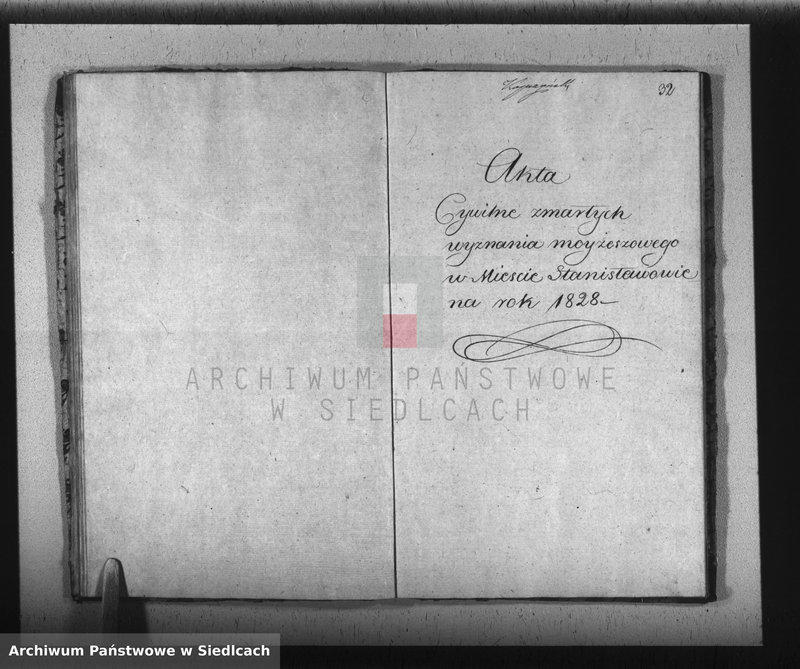 32
Akta
Cywilne zmarłych
wyznania moyżeszowego
w Miescie Stanisławowie
na rok 1828
ARCHIWUM PAŃSTWOWE
W SIEDLCACH
Archiwum Państwowe w Siedlcach